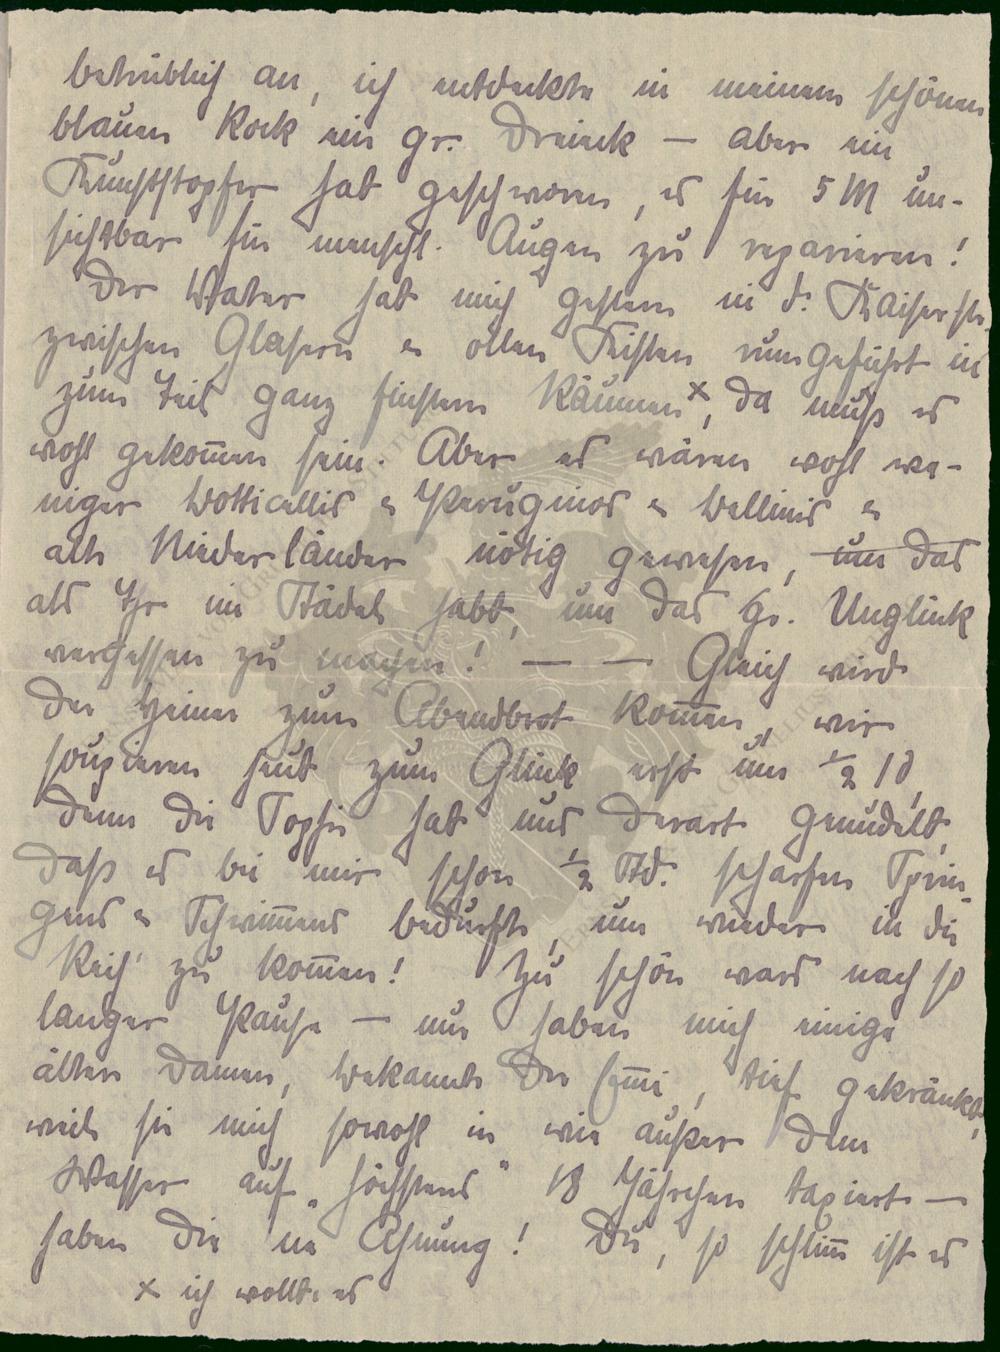 betrüblich an, ich entdeckte in meinem schönen
blauen Rock ein gr. Dreieck — aber ein
Kunststopfer hat geschworen, es für 5 M un-
sichtbar für menschl. Augen zu reparieren!
Der Vater hat mich gestern in d. Kaiserstr.
zwischen Gläsern u ollen Kisten rumgeführt in
zum Teil ganz finstern Räumen x, da muß es
wohl gekom̅en sein. Aber es wären wohl we-
niger Botticellis u Peruginos u Bellinis u
alte Niederländer nötig gewesen, um das
als Ihr im Städel habt, um das gr. Unglück
vergessen zu machen! — — Gleich wird
der Heiner zum Abendbrot kom̅en, wir
soupieren heut zum Glück erst um ½ 10,
denn die Sophie hat uns derart genudelt,
daß es bei mir schon ½ Std. scharfen Sprin-
gens u Schwim̅ens bedurfte, um wieder in die
Reih' zu kom̅en! Zu schön wars nach so
langer Pause — nur haben mich einige
ältere Damen, Bekannte der, tief gekränkt,
weil sie mich sowohl in wie außer dem
Wasser auf „höchstens" 18 Jährchen taxierte —
haben die ne Ahnung! Du, so schlim̅ ist es
x ich wollte es